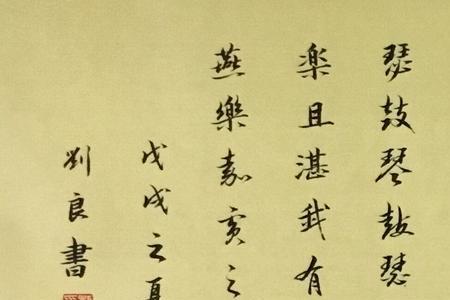 瑟鼓琴鼓瑟
楽且湛我有
燕樂嘉賓之
戊戌之夏
劉良書